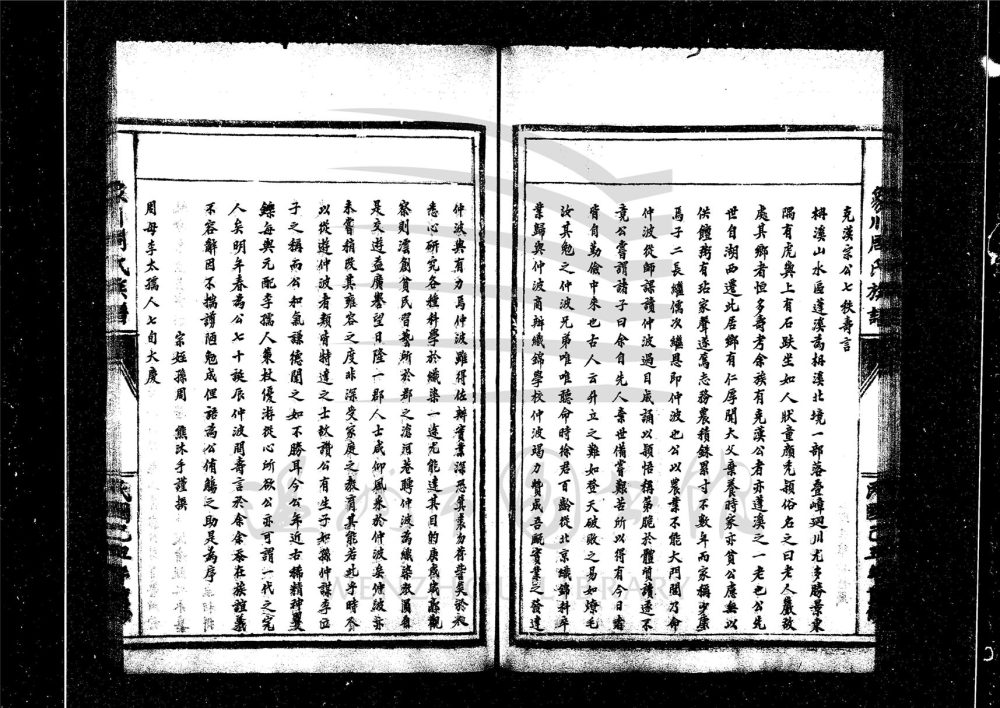 克漢宗公七秩壽言
枏溪山水區蓬溪為枏溪北境一部落疊嶂迴川尤多勝景東
隅有虎輿上有石趺坐如人狀童顏禿頴俗名之曰老人巖故
處其鄉者恒多壽考余族有克漢公者亦蓬溪之一老也公先
世自湖西遷此居鄉有仁厚聞大父棄養時家亦貧公慮無以
供饘粥有玷家聲遂篤志務農積銖累寸不數年而家稱少康
焉子二長繼儒次繼恩即仲波也公以農業不能大門閭乃命
仲波從師課讀仲波過目成誦以穎悟稱第脆於體質讀遂不
竟公嘗謂諸子曰余自先人棄世備嘗艱苦所以得有今日者
皆自勤儉中來也古人云升立之難如登天破敗之易如燎毛
汝其勉之仲波兄弟唯唯聽命時徐君百齡從北京織錦科卒
業歸與仲波商辦織錦學校仲波竭力贊成吾甌實業之發達
仲波與有力焉仲波雖得佐辦實業深恐其裹勿普嘗矣於衣
悉心研究各種科學於織染一途尤能達其目的庚歲戚藎觀
察則澐創貧民習藝所於郡之滄河巷聘仲波為織染教員自
是交遊益廣譽望日隆一郡人士咸仰風采於仲波矣仲波亦
未嘗稍改其雍容之度非深受家庭之教育其能若此乎時不
以從遊仲波者類皆特達之士欽讚公有生子如孫仲謀李亞
子之稱而公和氣謙德聞之如不勝耳今公年近古稀精神矍
鑠每與元配李孺人棗杖優游從心所欲公亦可謂一代之完
人矣明年春為公七十誕辰仲波問壽言於余余忝在族誼義
不容辭因不揣謭陋勉成俚語為公侑觴之助是為序
宗姪孫周 熊沐手謹撰
周母李太孺人七旬大慶
WENZHOU LIBRARY